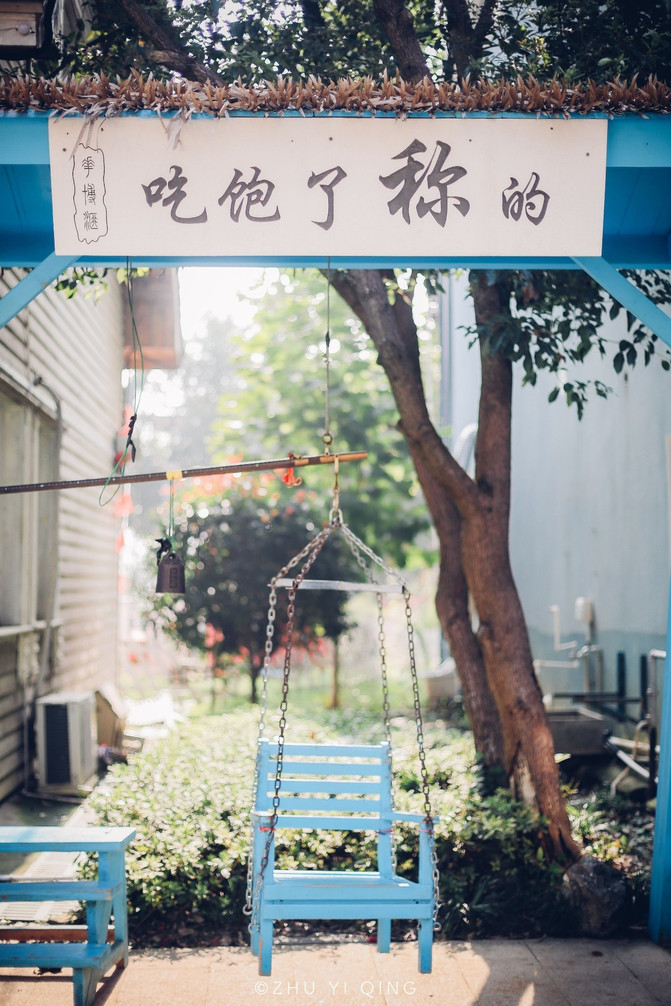 华博滙
吃饱了称的
©ZHU YI QING